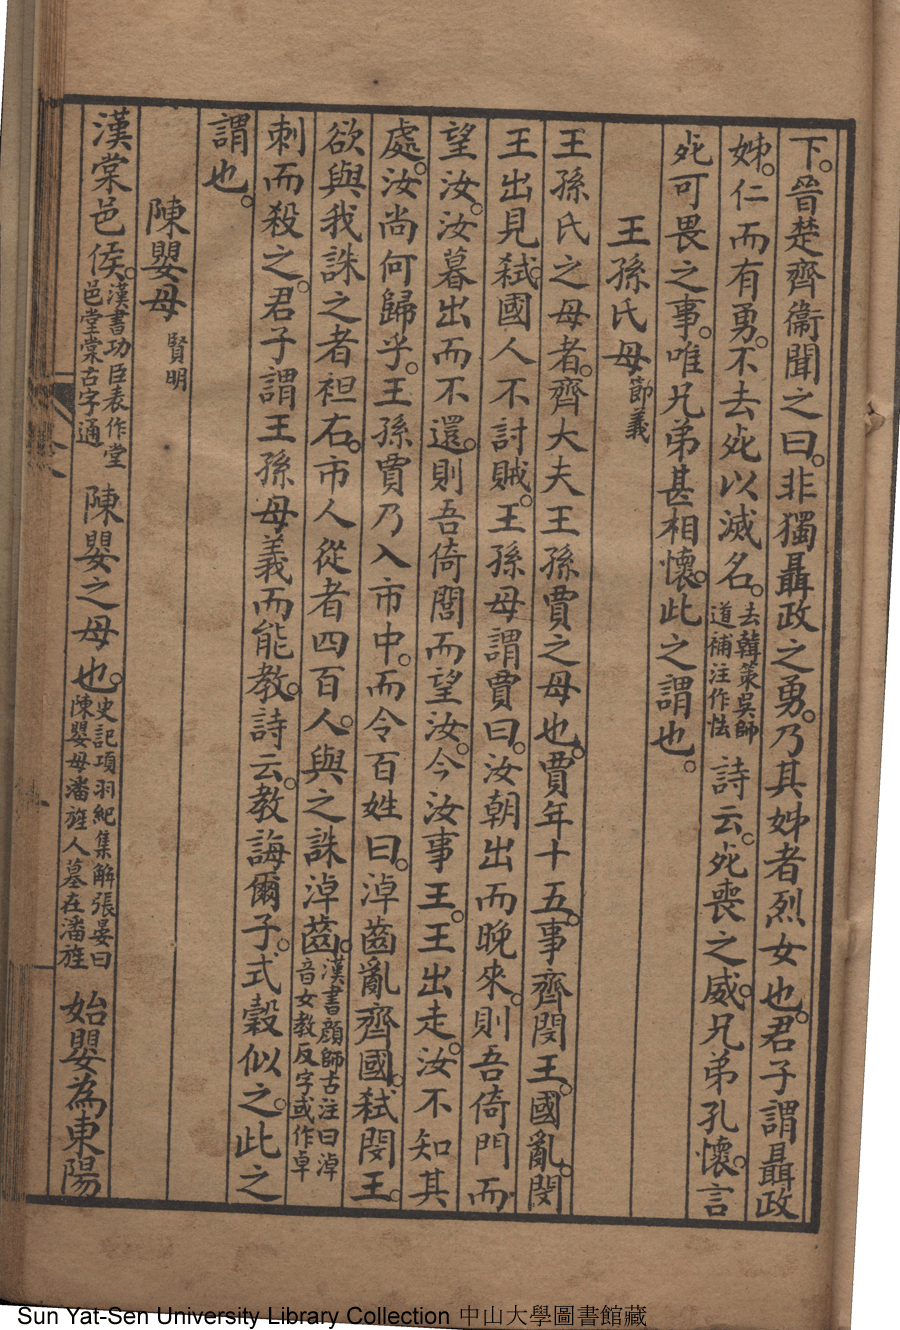 下。晉楚齊衞聞之曰。非獨聶政之勇。乃其姊者烈女也。君子謂聶政
姊。仁而有勇。不去死以滅名。去韓策吳師道補注作怯詩云。死喪之威。兄弟孔懷。言
死可畏之事。唯兄弟甚相懷。此之謂也。
王孫氏母節義
王孫氏之母者。齊大夫王孫賈之母也。賈年十五。事齊閔王。國亂。閔
王出見弑。國人不討賊。王孫母謂賈曰。汝朝出而晚來。則吾倚門而
望汝。汝暮出而不還。則吾倚閭而望汝。今汝事王。王出走。汝不知其
處。汝尚何歸乎。王孫賈乃入市中。而令百姓曰。淖齒亂齊國。弑閔王。
欲與我誅之者袒右。市人從者四百人。與之誅淖齒。漢書顔師古注曰淖音女教反字或作卓
刺而殺之。君子謂王孫母義而能教。詩云。教誨爾子。式穀似之。此之
謂也。
陳嬰母賢明
漢棠邑侯。漢書功臣表作堂邑堂棠古字通陳嬰之母也。史記項羽紀集解張晏曰陳嬰母潘旌人墓在潘旌始嬰為東陽
Sun Yat-Sen University Library Collection 中山大學圖書館藏